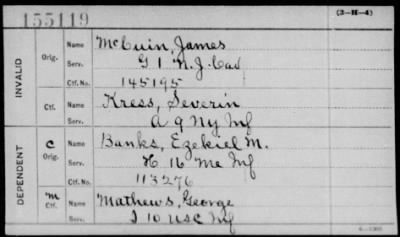 155119 (3-H-4)
INVALID Orig. Name McCuin, James
Serv. G 1 N.J. Cav
Ctf. No. 145195
Ctf. Name Kress, Severin
Serv. A 9 Ny Inf
DEPENDENT C Orig. Name Banks, Ezekiel M.
Serv. H 16 Me Inf
Ctf. No. 113276
M Ctf. Name Mathews, George
Serv. I 10 USC Inf